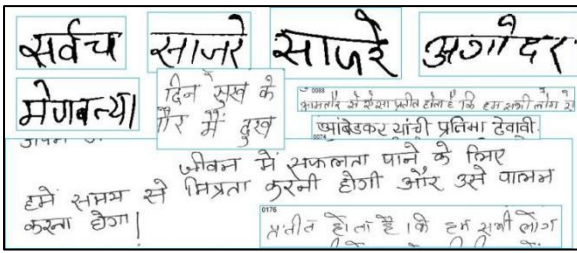 सर्वच साजरे साजरे अगोदर
मेणबत्या
दिन सुख के
और में दुख
0088
आमतौर से ऐसा प्रतीत होता है कि हम सभी लोग
आंबेडकर यांची प्रतिमा ठेवावी.
0074
जीवन में सफलता पाने के लिए
हमें समय से मित्रता करनी होगी और उसे पालन
करना होगा|
0176
प्रतीत होता है। कि हम सभी लोग